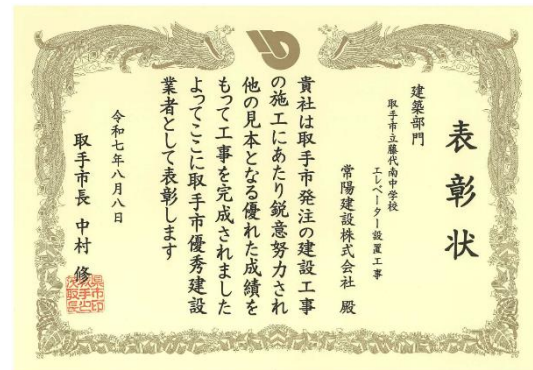 表彰状
建築部門
取手市立藤代南中学校
エレベーター設置工事
常陽建設株式会社 殿
貴社は取手市発注の建設工事
の施工にあたり鋭意努力され
他の見本となる優れた成績を
もって工事を完成されました
よってここに取手市優秀建設
業者として表彰します
令和七年八月八日
取手市長 中村 修